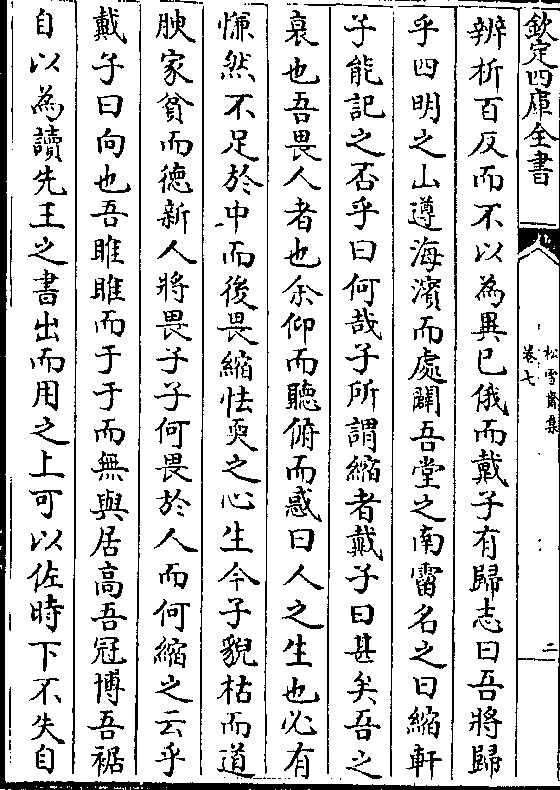 欽定四庫全書
松雪齋集
卷七
二
辨析百反而不以為異已俄而戴子有歸志曰吾將歸
乎四明之山遵海濱而處闢吾堂之南霤名之曰縮軒
子能記之否乎曰何哉子所謂縮者戴子曰甚矣吾之
衰也吾畏人者也余仰而聽俯而惑曰人之生也必有
慊然不足於中而後畏縮怯耎之心生今子貌枯而道
腴家貧而德新人將畏子子何畏於人而何縮之云乎
戴子曰向也吾睢睢而于于而無與居高吾冠博吾裾
自以為讀先王之書出而用之上可以佐時下不失自